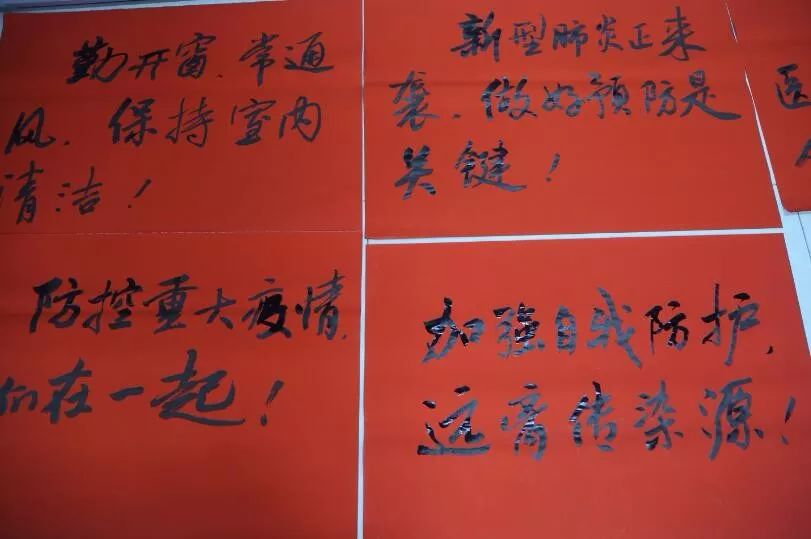 勤开窗、常通
风、保持室内
清洁！
新型肺炎正来
袭、做好预防是
关键！
医
防控重大疫情，
们在一起！
加强自我防护，
远离传染源！